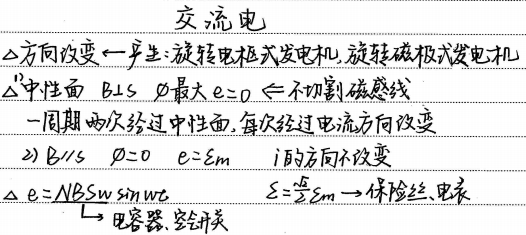 交流电
△方向改变←产生:旋转电枢式发电机,旋转磁极式发电机
△1)中性面 B⊥S Φ最大 e=0 ⇐不切割磁感线
一周期两次经过中性面,每次经过电流方向改变
2) B//S Φ=0 e=εm i的方向不改变
△ e=NBSw sinwt ε=√2/2 εm→保险丝、电表
↳电容器、空气开关